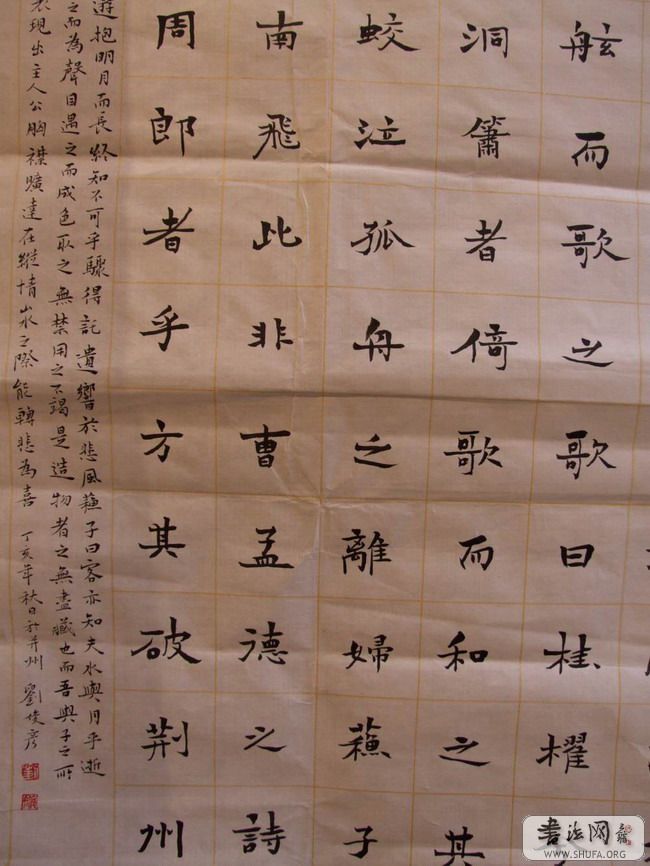 舷而歌之歌曰桂櫂
洞簫者倚歌而和之其
蛟泣孤舟之離婦蘓子
南飛此非曹孟德之詩
周郎者乎方其破荆州
遊抱明月而長終知不可乎驟得託遺響於悲風蘓子曰客亦知夫水與月乎逝
之而為聲目遇之而成色取之無禁用之不竭是造物者之無盡藏也而吾與子之所
表現出主人公胸襟曠達在縱情山水之際能轉悲為喜 丁亥年秋日於并州 劉俊彥
書法网
WWW.SHUFA.ORG